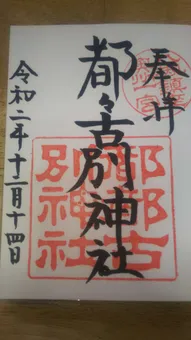 奉拝
都々古別神社
令和二年十二月十四日
都都古
別神社
一宮